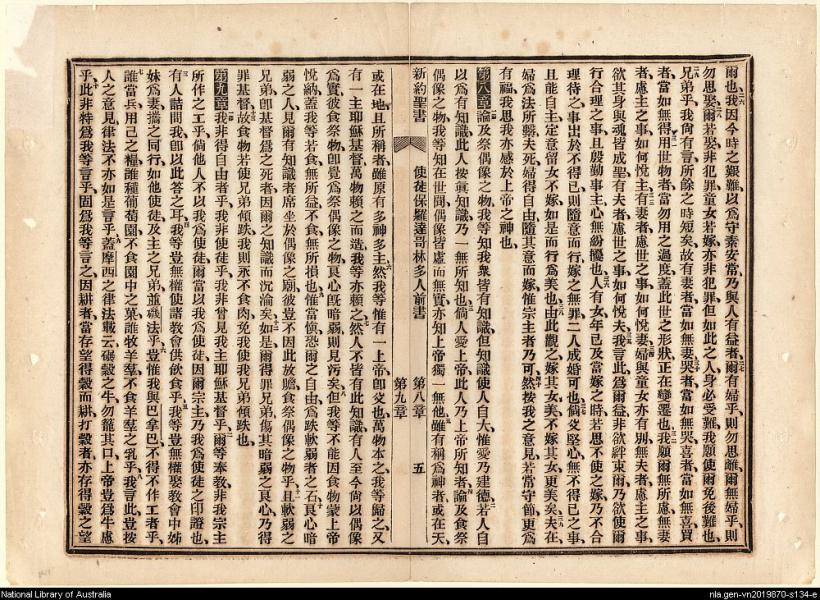 爾也我因今時之艱難以爲守素安當乃與人有益者爾有婦乎則勿思離爾無婦乎則
勿思娶爾若娶非犯罪童女若嫁亦非犯罪但如此之人身必受難我願使爾免後難也
兄弟乎我尙有言所餘之時短矣故有妻者當如無妻哭者當如無哭喜者當如無喜買
者當如無得用世物者當勿用之過度蓋此世之形狀正在變遷也我願爾無所慮無妻
者慮主之事如何悅主有妻者慮世之事如何悅妻婦與童女亦有別無夫者慮主之事
欲其身與魂皆成聖有夫者慮世之事如何悅夫我言此爲爾益非欲絆束爾乃欲使爾
行合理之事且殷勤事主心無紛擾也人有女年已及當嫁之時若思不使之嫁乃不合
理待之事出於不得已則隨意而行嫁之無罪二人成婚可也倘父堅心無不得已之事
且能自主定意留女不嫁如是而行爲美也由此觀之嫁其女美不嫁其女更美矣夫在
婦爲法所繫夫死婦得自由隨其意而嫁惟宗主者乃可然按我之意見若當守節更爲
有福我思我亦感於上帝之神也
第八章論及祭偶像之物我等知我衆皆有知識但知識使人自大惟愛乃建德若人自
以爲有知識此人按眞知識乃一無所知也倘人愛上帝此人乃上帝所知者論及食祭
偶像之物我等知在世間偶像皆虛而無實亦知上帝獨一無他雖有稱爲神者或在天
新約聖書 使徒保羅達哥林多人前書 第八章 第九章 五
或在地且所稱者雖原有多神多主然我等惟有一上帝卽父也萬物本之我等歸之又
有一主耶穌基督萬物賴之而造我等亦賴之然人不皆有此知識有人至今尙以偶像
爲實彼食祭物卽覺爲祭偶像之物良心旣暗弱則見污矣但我等不能因食物蒙上帝
悅納蓋我等若食無所益不食無所損也惟當愼恐爾之自由爲跌軟弱者之石良心暗
弱之人見爾有知識者席坐於偶像之廟彼豈不因此放膽食祭偶像之物乎且軟弱之
兄弟卽基督爲之死者因爾之知識而沉淪矣如是爾得罪兄弟傷其暗弱之良心乃得
罪基督故食物若使兄弟傾跌我則永不食肉免我使我兄弟傾跌也
第九章我非得自由者乎我非使徒者乎我非曾見我主耶穌基督乎爾等奉教非我宗主
所作之工乎倘他人不以我爲使徒爾當以我爲使徒因爾宗主乃我爲使徒之印證也
有人詰問我卽以此答之耳我等豈無權使諸教會供飲食乎我等豈無權娶教會中姊
妹爲妻攜之同行如他使徒及主之兄弟並磯法乎豈惟我與巴拿巴不得不作工者乎
誰當兵用己之糧誰種葡萄園不食園中之菓誰牧羊羣不食羊羣之乳乎我言此豈按
人之意見律法不亦如是言乎蓋摩西之律法載云碾穀之牛勿籠其口上帝豈爲牛慮
乎此非特爲我等言乎固爲我等言之因耕者當存望得穀而耕打穀者亦存得穀之望
National Library of Australia
nla.gen-vn2019870-s134-e